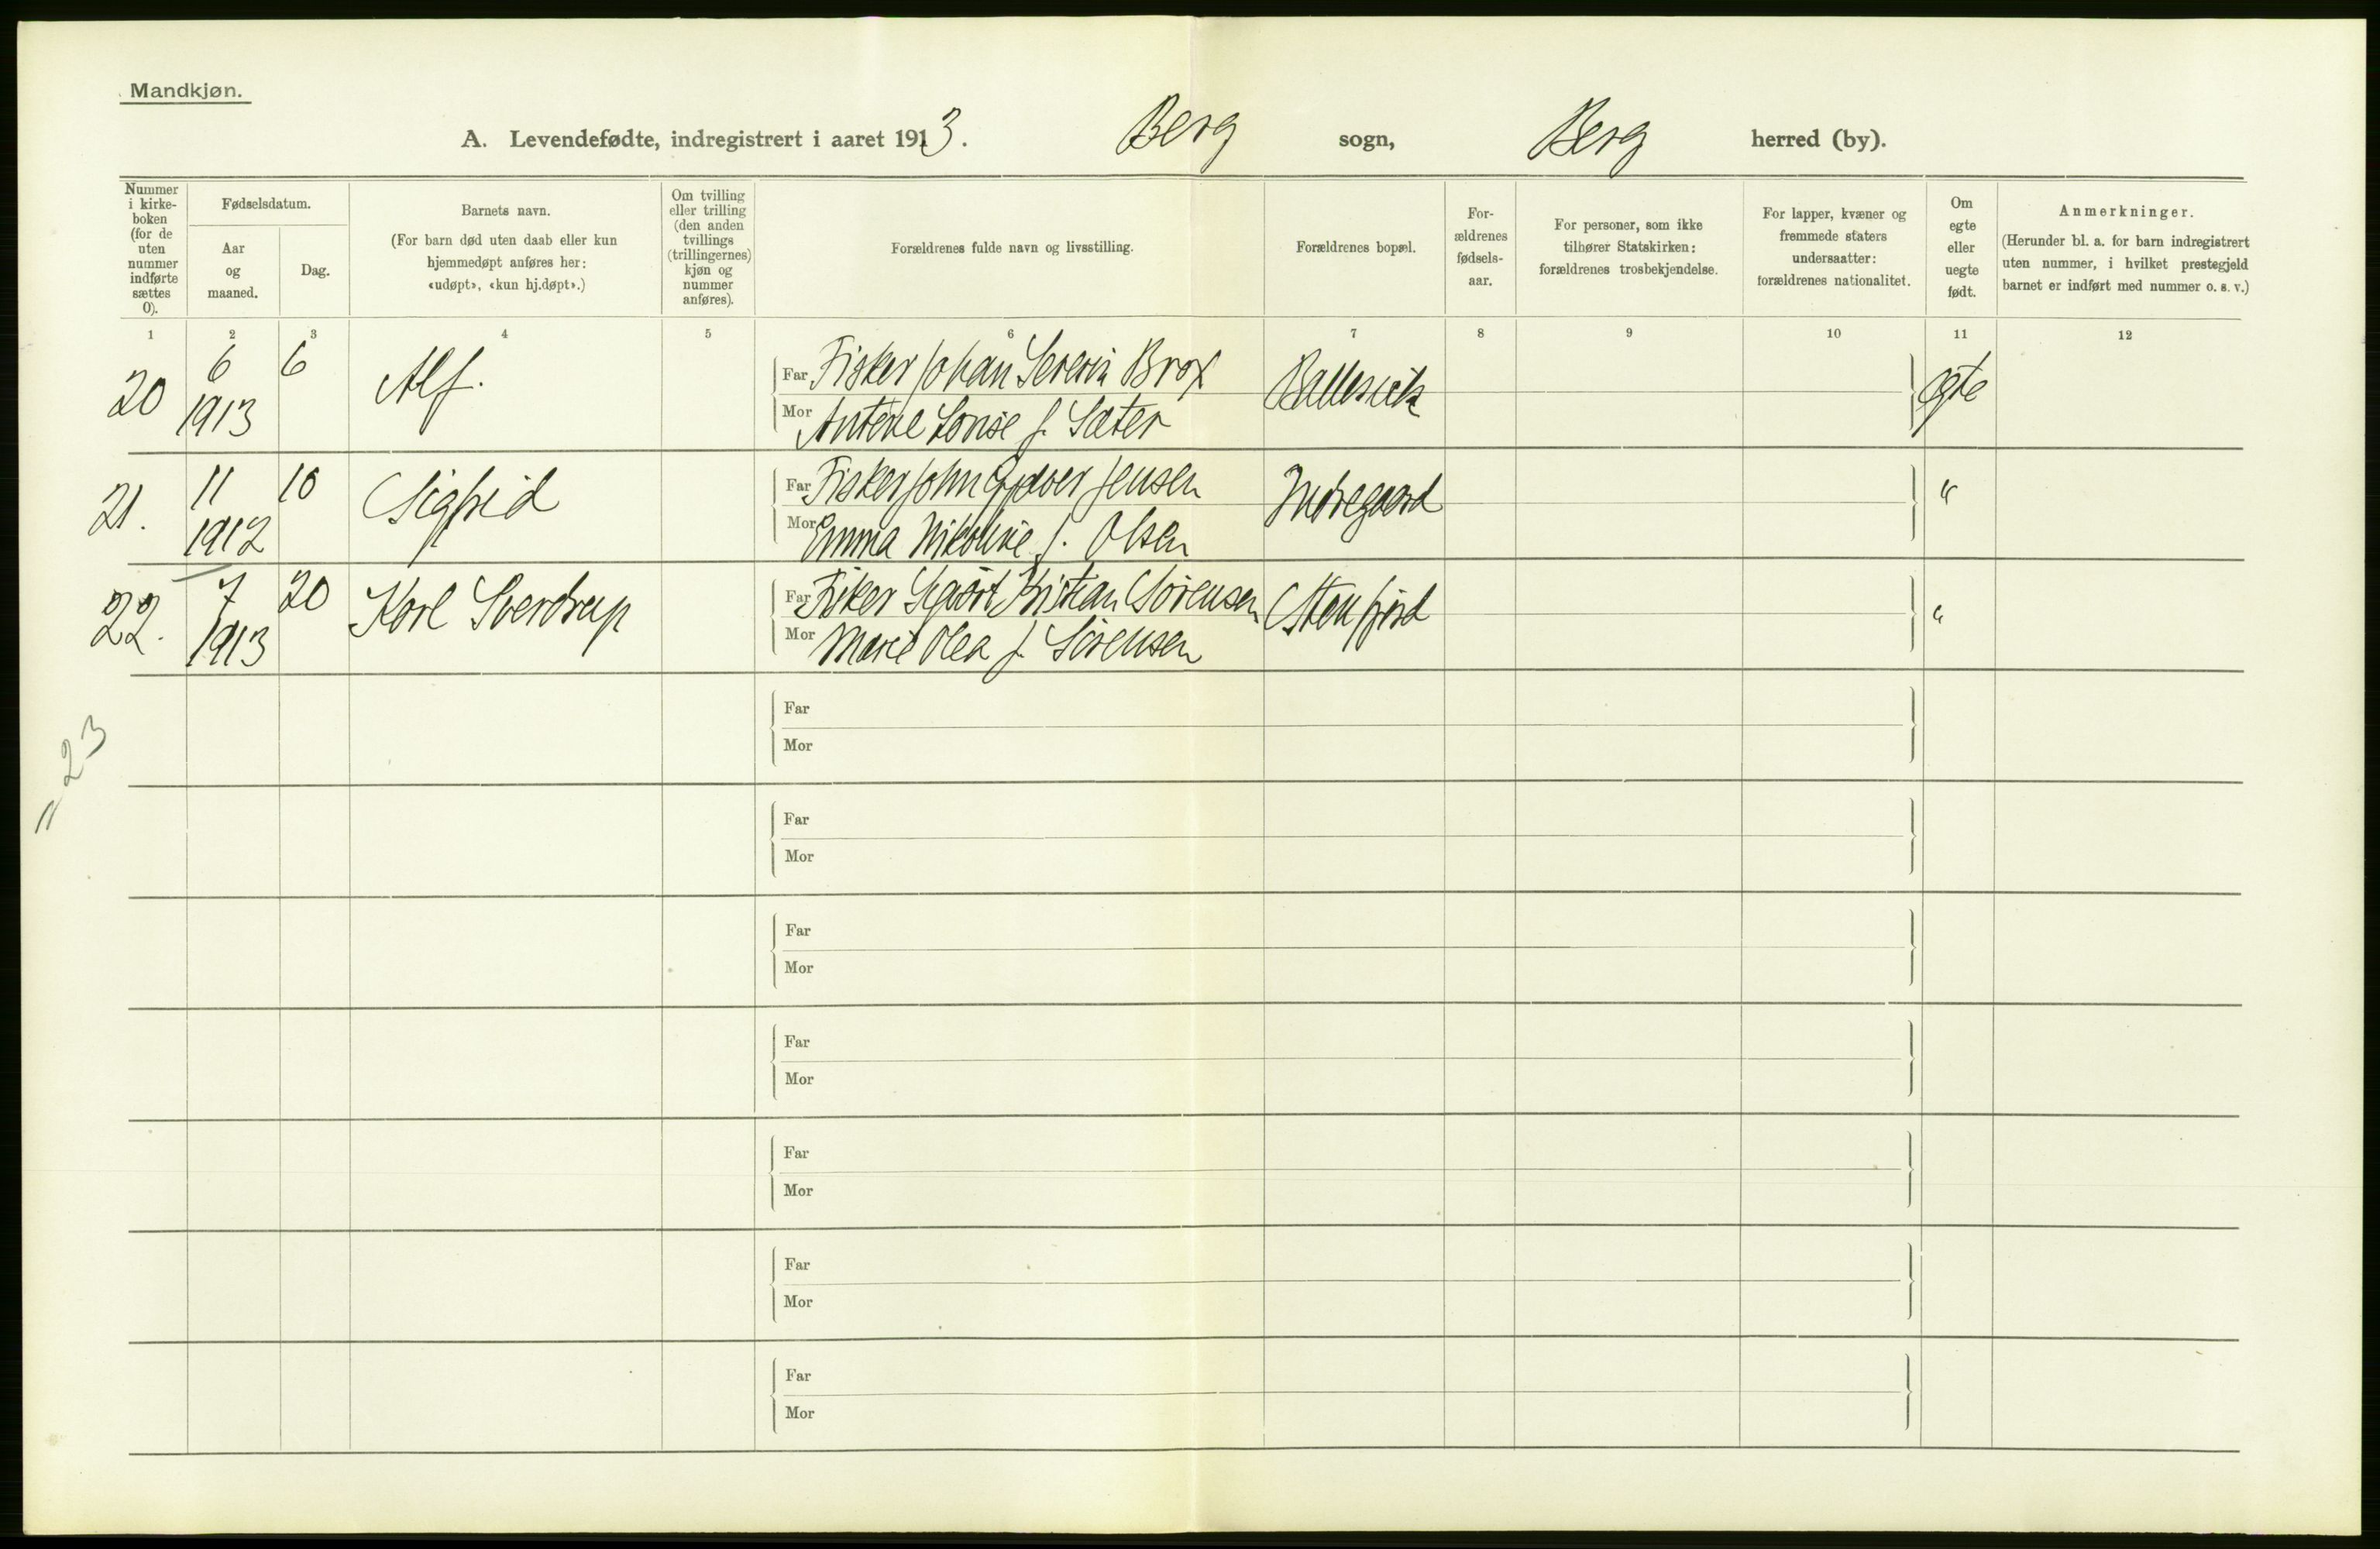 Mandkjøn.
A. Levendefødte, indregistrert i aaret 1913. Berg sogn, Berg herred (by).
Nummer i kirke-boken (for de uten nummer indførte sættes 0).
Fødselsdatum.
Aar og maaned.
Dag.
Barnets navn.
(For barn død uten daab eller kun hjemmedøpt anføres her: «udøpt», «kun hj.døpt».)
Om tvilling eller trilling (den anden tvillings (trillingernes) kjøn og nummer anføres).
Forældrenes fulde navn og livsstilling.
Forældrenes bopæl.
For-ældrenes fødsels-aar.
For personer, som ikke tilhører Statskirken: forældrenes trosbekjendelse.
For lapper, kvæner og fremmede staters undersaatter: forældrenes nationalitet.
Om egte eller uegte født.
Anmerkninger.
(Herunder bl. a. for barn indregistrert uten nummer, i hvilket prestegjeld barnet er indført med nummer o. s. v.)
1 2 3 4 5 6 7 8 9 10 11 12
20 6 1913 6 Alf. Far Fisker Johan Severin Brox Ballesvik egte
Mor Antene Lovise f. Sæter
21. 11 1912 10 Sigfrid Far Fisker John Jensen Indregaard "
Mor Emma Nikoline f. Olsen
22. 7 1913 20 Karl Sverdrup Far Fisker Sigvart Kristian Sörensen Stenfjord "
Mor Marie Olea f. Sörensen
23
Far
Mor
Far
Mor
Far
Mor
Far
Mor
Far
Mor
Far
Mor
Far
Mor